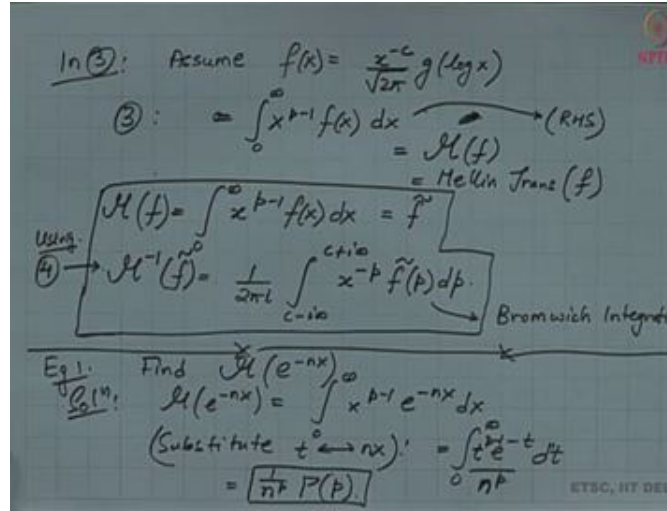 In ③: Assume f(x) = x^{-c}/√2π g(log x)
③ : = ∫_0^∞ x^{p-1} f(x) dx → (RHS)
= M(f)
= Mellin Trans (f)
M(f) = ∫_0^∞ x^{p-1} f(x) dx = f̃
Using ④ → M^{-1}(f̃) = 1/2πi ∫_{c-i∞}^{c+i∞} x^{-p} f̃(p) dp.
→ Bromwich Integra
Eg 1. Find M(e^{-nx})
Solⁿ: M(e^{-nx}) = ∫_0^∞ x^{p-1} e^{-nx} dx
(Substitute t ↔ nx): = ∫_0^∞ t^{p-1} e^{-t} dt / n^p
= 1/n^p Γ(p).
ETSC, IIT DE
NPT